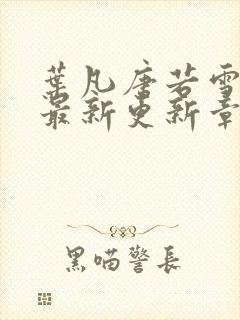 葉凡唐若雪
最新更新章
黑喵警長